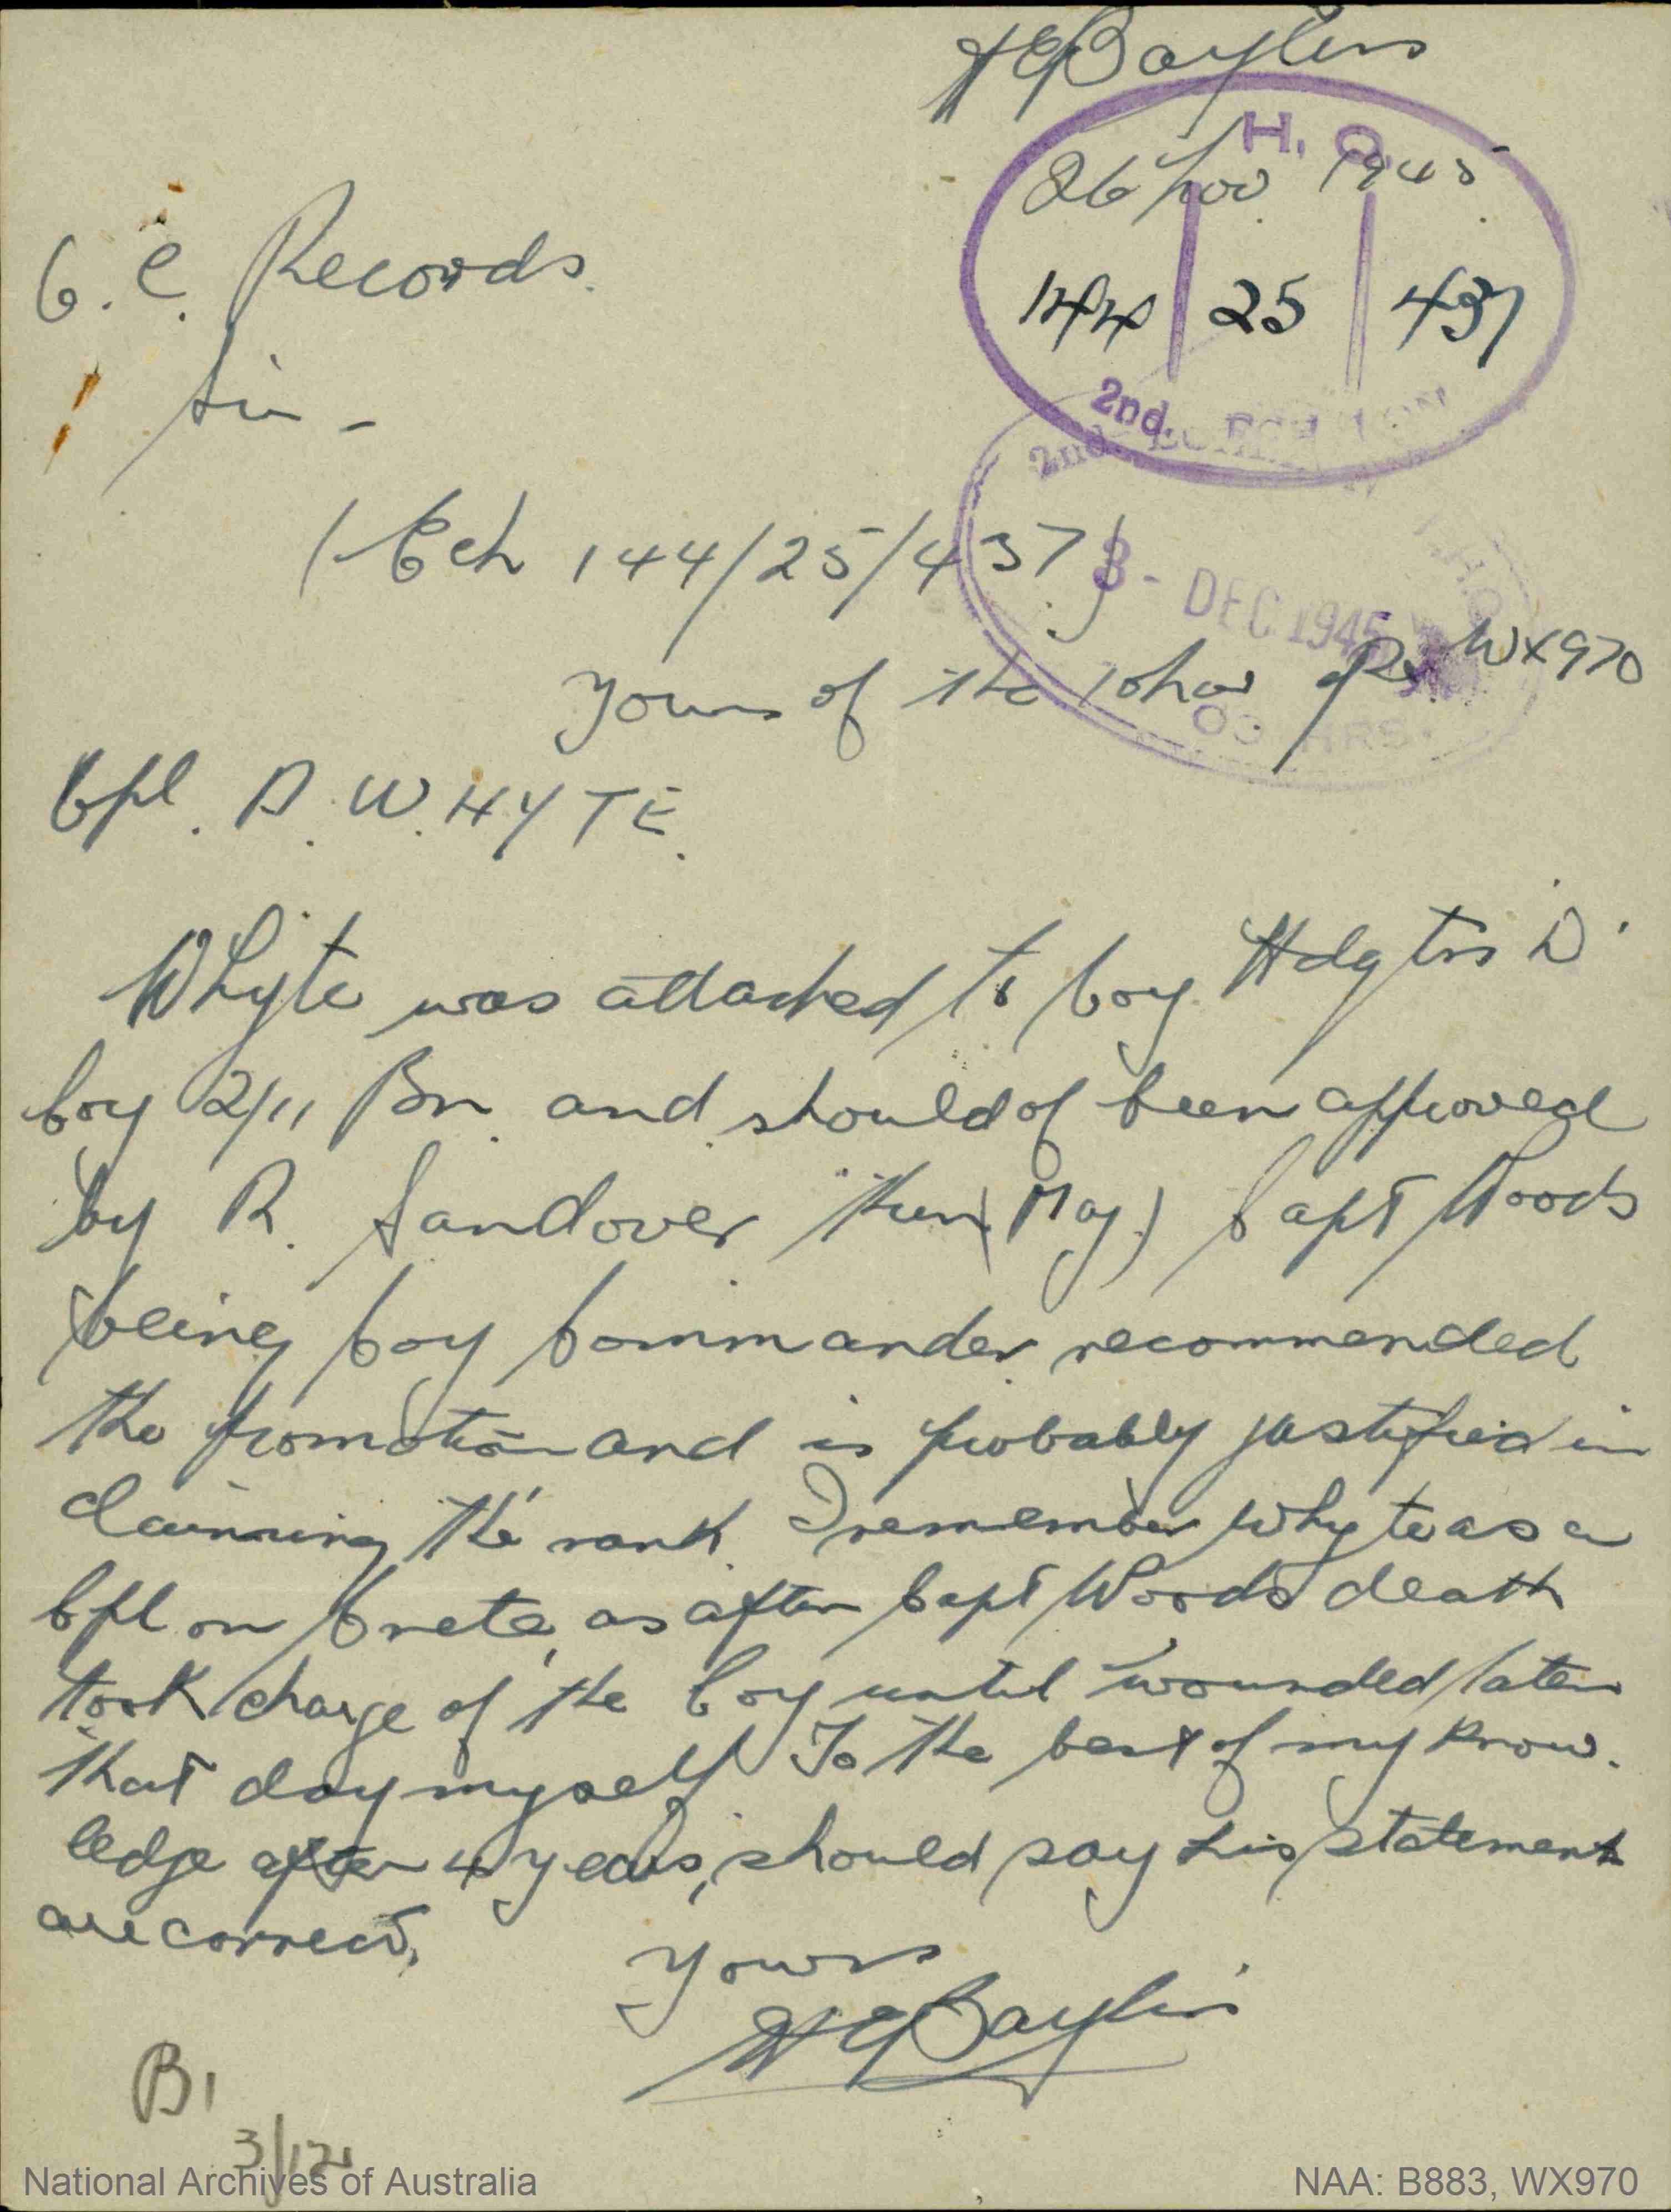 H E Baylis
H. Q.
26 Nov 1945
144 25 437
2nd. ECHELON
O. C. Records.
Sir -
(Ech 144/25/437)
2nd ECHELON
3 - DEC 1945
HRS.
Yours of the 10 Nov Re WX970
Cpl. D. W. HYTE.
Whyte was attached to Coy Hdqtrs D
Coy 2/11 Bn. and should of been approved
by R. Sandover then (Maj.) Capt Woods
being Coy Commander recommended
the promotion and is probably justified in
claiming the rank. I remember Whyte as a
Cpl on Crete, as after Capt Woods death
took charge of the Coy until wounded later
that day myself To the best of my know-
ledge after 4 years, should say his statement
are correct.
Yours
H E Baylis
B1
3/12
National Archives of Australia
NAA: B883, WX970